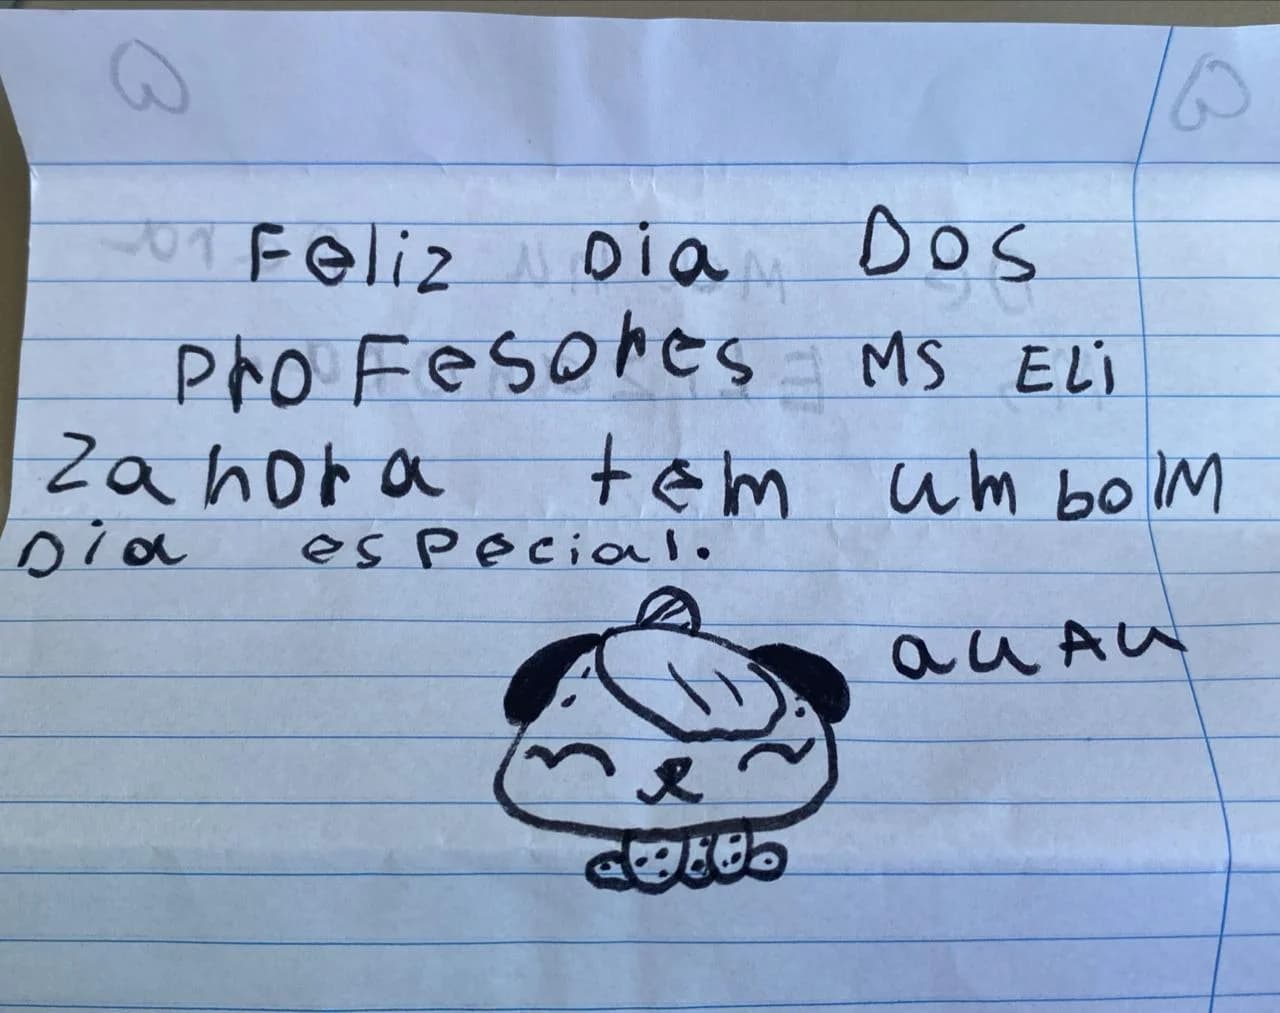 Feliz Dia DOS
ProFesores MS ELi
Zanora tem um boM
Dia especial.
auAu